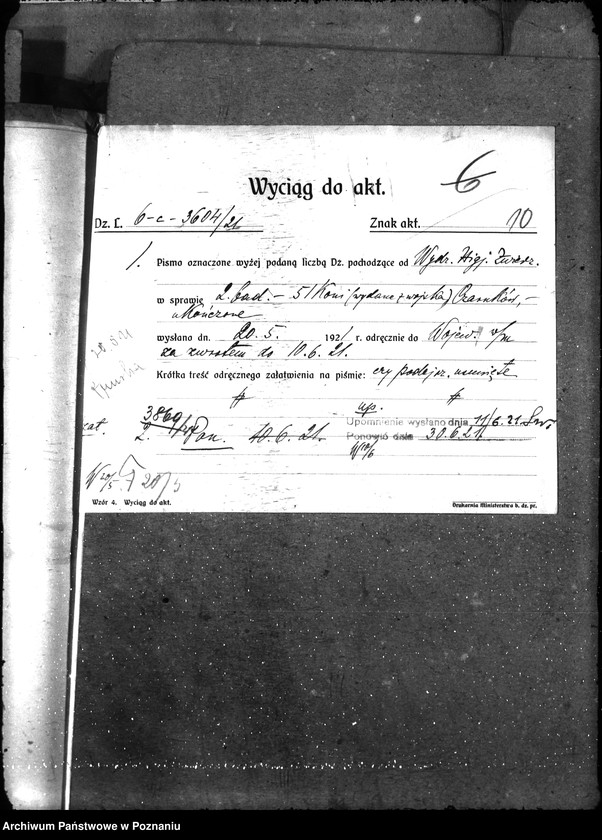 6
Wyciąg do akt.
Dz. L. 6-c-3604/21. Znak akt. 10
1. Pismo oznaczone wyżej podaną liczbą Dz. pochodzące od Wydz. Higj. Zwierz.
w sprawie 2. bad. - 51 koni (wydane z wojska) Czarnków, -
ukończone
wysłano dn. 20.5. 1921 r. odręcznie do Wojew. w/m
za zwrotem do 10.6.21.
Krótka treść odręcznego załatwienia na piśmie: czy podejrz. usunięte
3860/21
2. Pon. 10.6.21.
Upomnienie wysłano dnia 11/6.21.
Ponowić dnia 30.6.21.
20/5
Wzór 4. Wyciąg do akt.
Drukarnia Ministerstwa b. dz. pr.
Archiwum Państwowe w Poznaniu